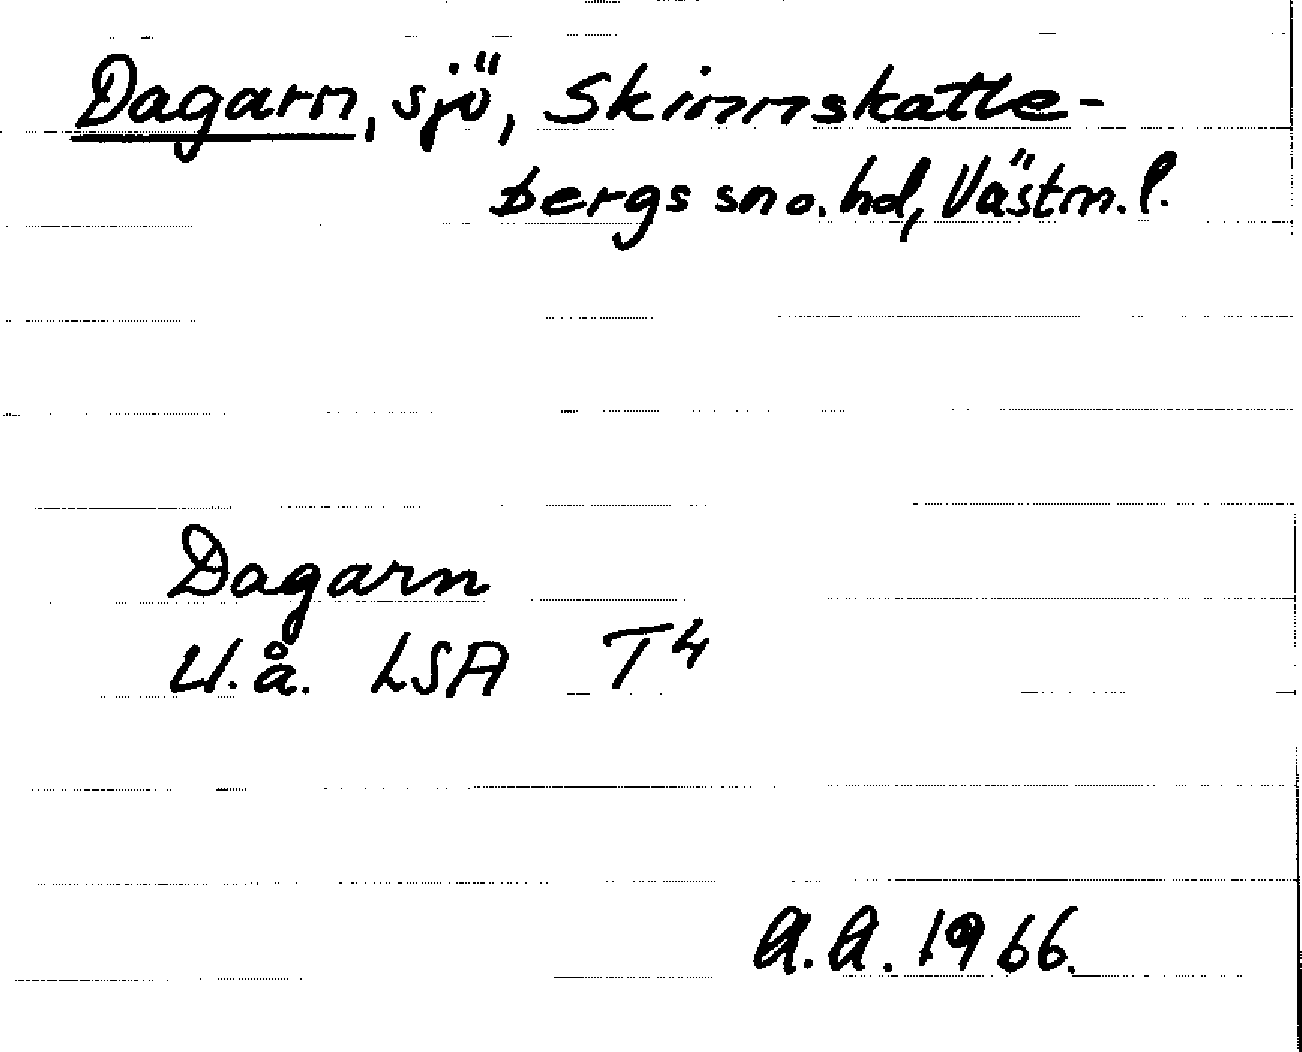 Dagarn, sjö, Skinnskatte-
bergs sn o. hd, Västm. l.
Dagarn
U.å. LSA T4
A.A. 1966.